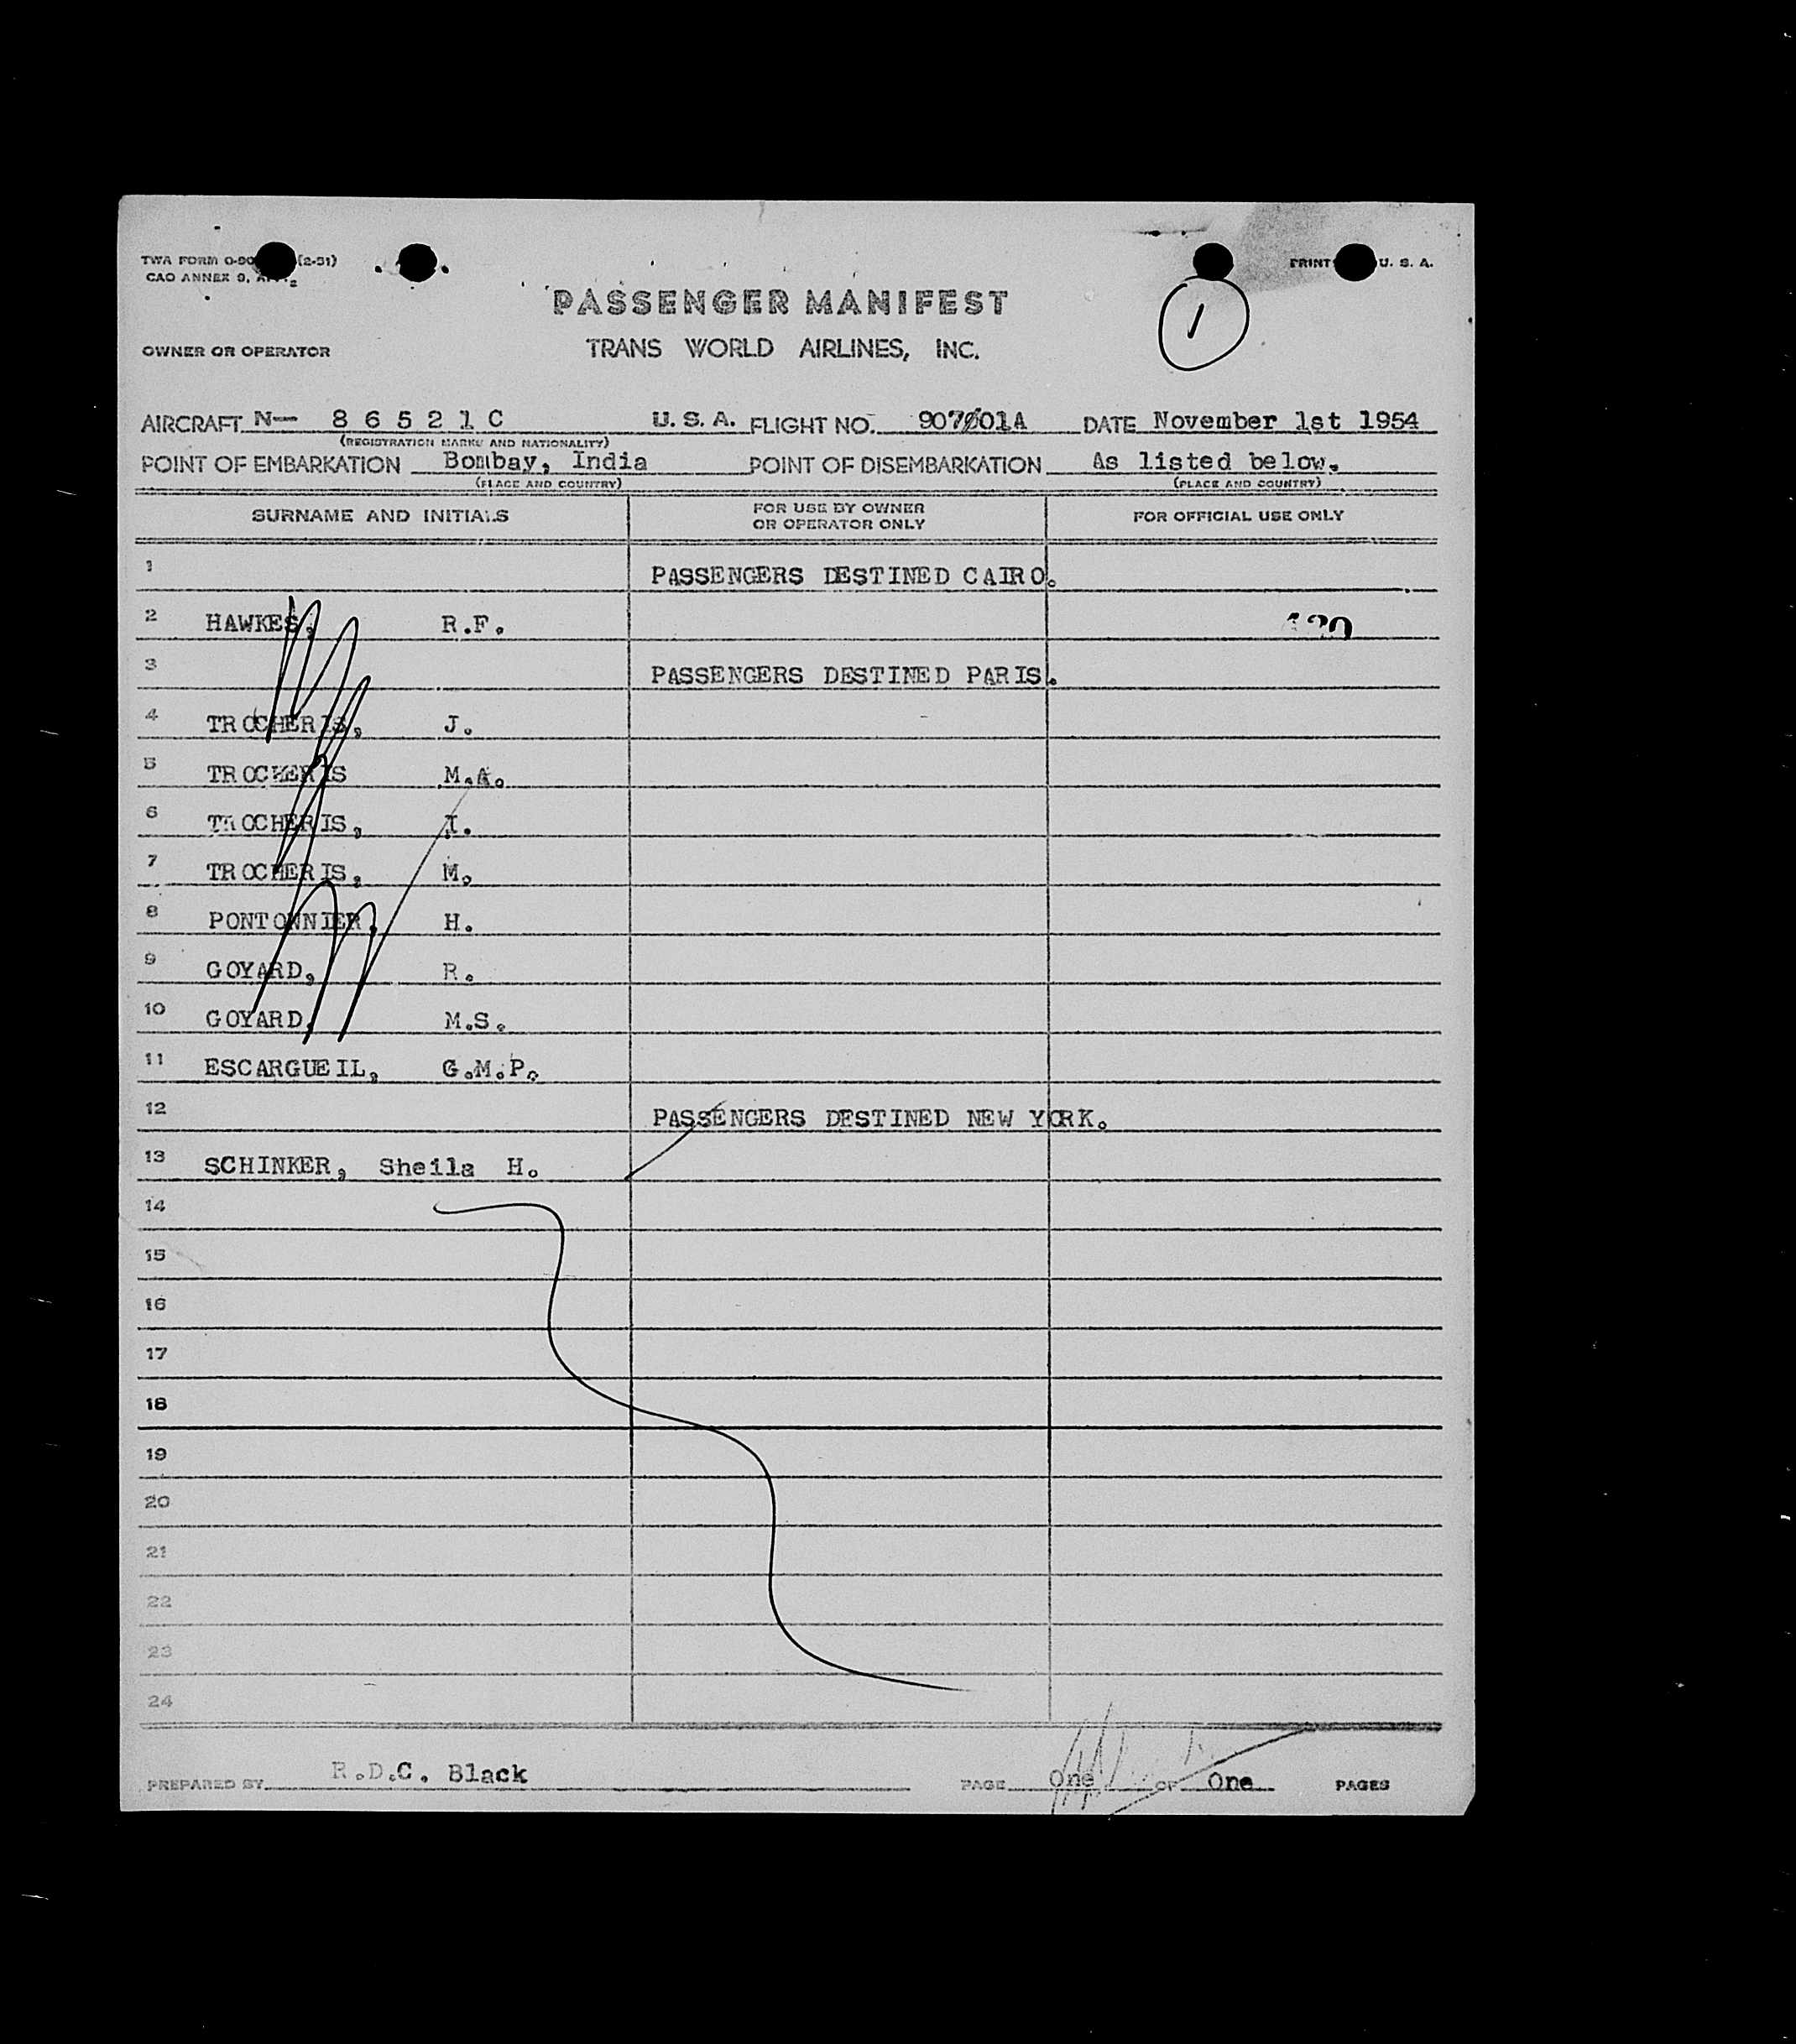 TWA FORM O-90 (2-51)
PRINT U. S. A.
CAO ANNEX 9,
PASSENGER MANIFEST
1
OWNER OR OPERATOR
TRANS WORLD AIRLINES, INC.
AIRCRAFT N— 8 6 5 2 1 C U.S.A. FLIGHT NO. 907/01A DATE November 1st 1954
(REGISTRATION MARKS AND NATIONALITY)
POINT OF EMBARKATION Bombay, India POINT OF DISEMBARKATION As listed below.
(PLACE AND COUNTRY) (PLACE AND COUNTRY)
SURNAME AND INITIALS FOR USE BY OWNER OR OPERATOR ONLY FOR OFFICIAL USE ONLY
1 PASSENGERS DESTINED CAIRO.
2 HAWKES, R.F.
3 PASSENGERS DESTINED PARIS.
4 TROCHERIS, J.
5 TROCHERIS M.A.
6 TROCHERIS, I.
7 TROCHERIS, M.
8 PONTONNIER, H.
9 GOYARD, R.
10 GOYARD, M.S.
11 ESCARGUEIL, G.M.P.
12 PASSENGERS DESTINED NEW YORK.
13 SCHINKER, Sheila H.
14
15
16
17
18
19
20
21
22
23
24
PREPARED BY R.D.C. Black PAGE One OF One PAGES